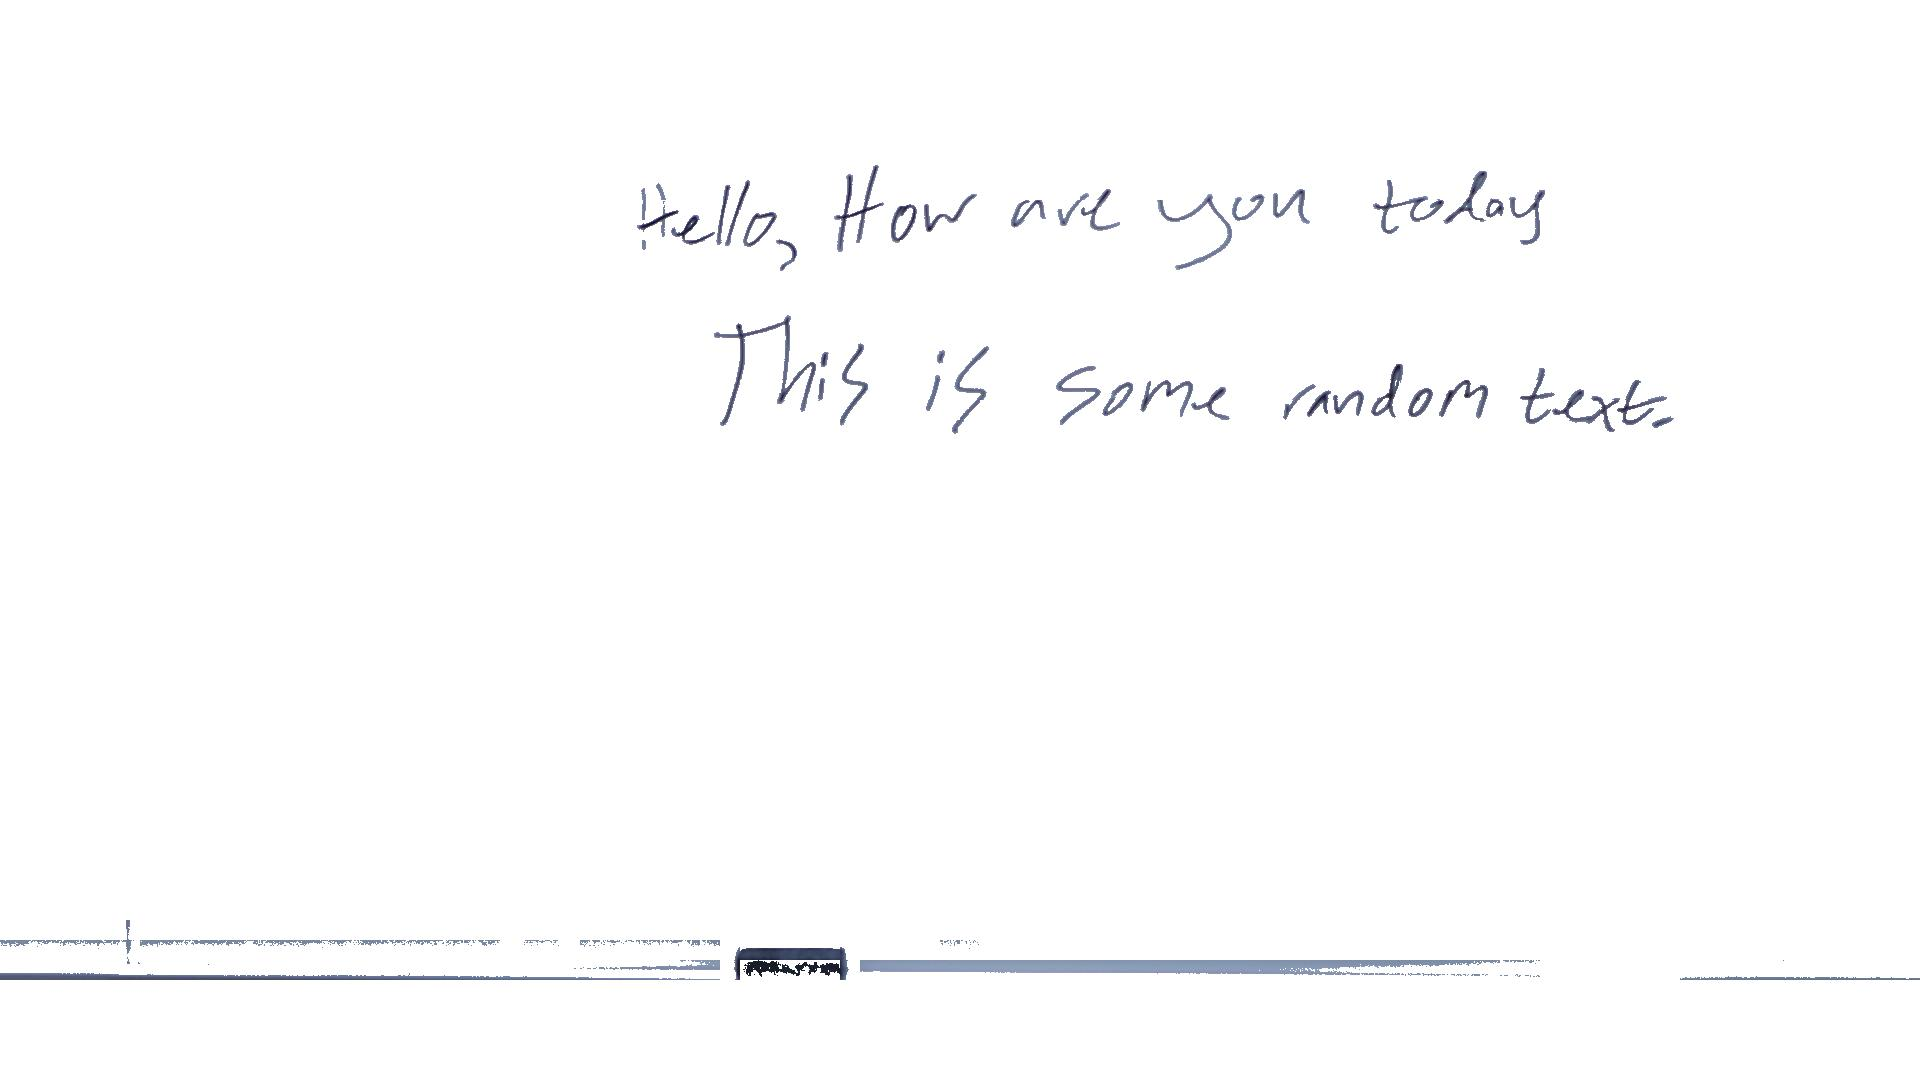 Hello, How are you today
This is some random text.